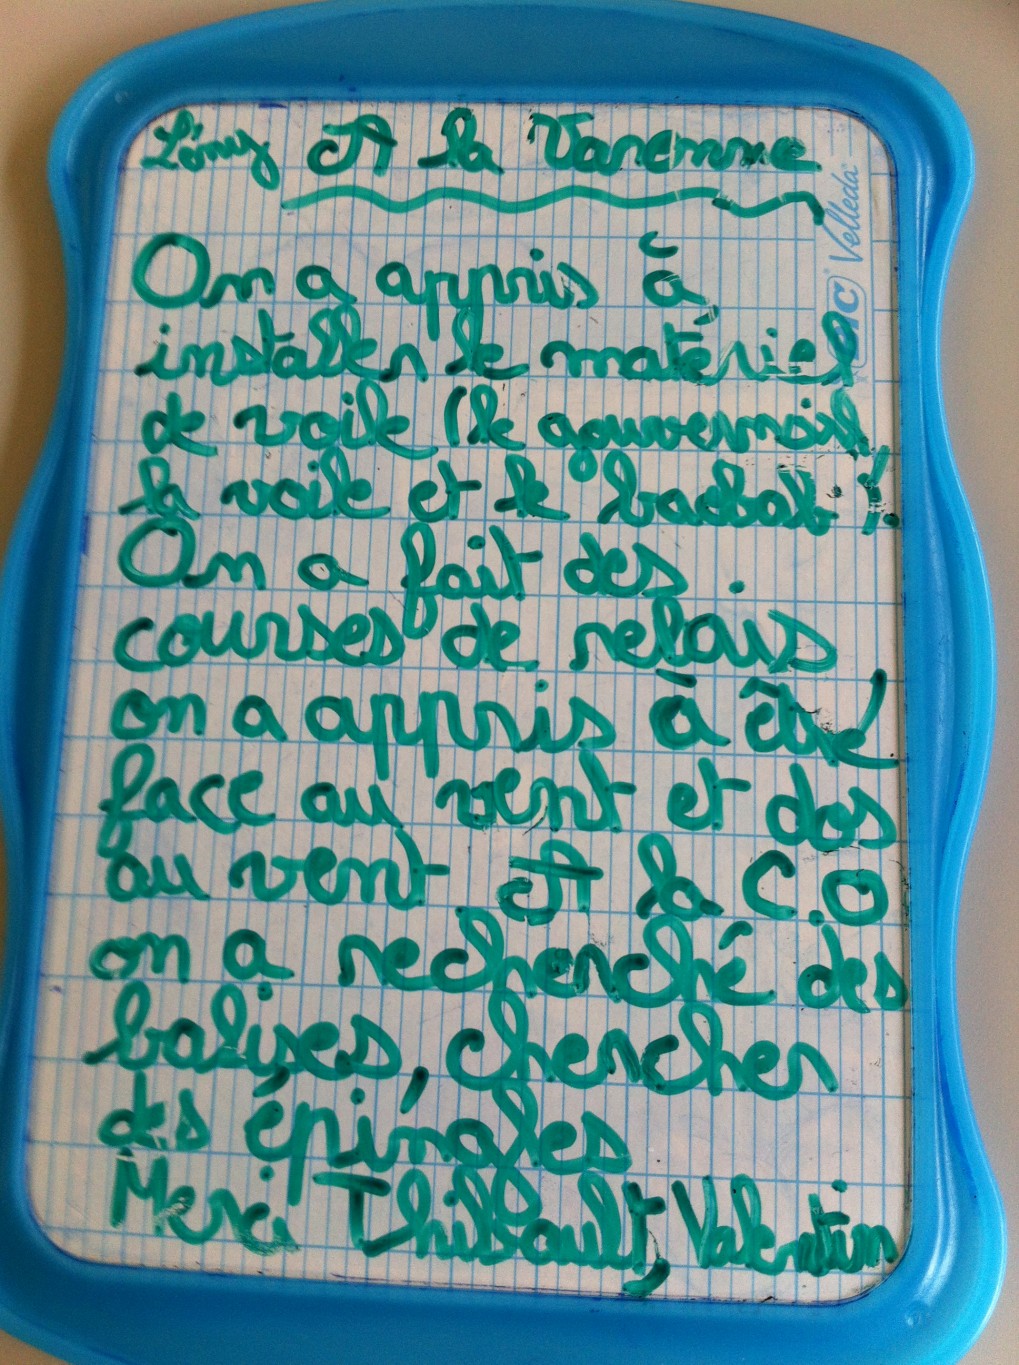 Lény A la Varenne
On a appris à
installer le matériel
de voile (le gouvernail,
la voile et le baobab).
On a fait des
courses de relais
on a appris à être
face au vent et dos
au vent A la C.O
on a recherché des
balises, chercher
des épingles
Merci Thibault, Valentin
BIC Velleda